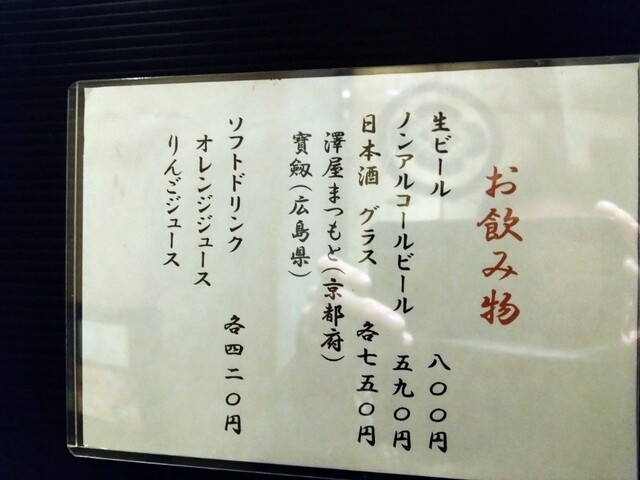 お飲み物
生ビール 八〇〇円
ノンアルコールビール 五九〇円
日本酒 グラス 各七五〇円
澤屋まつもと(京都府)
寳剱(広島県)
ソフトドリンク 各四二〇円
オレンジジュース
りんごジュース